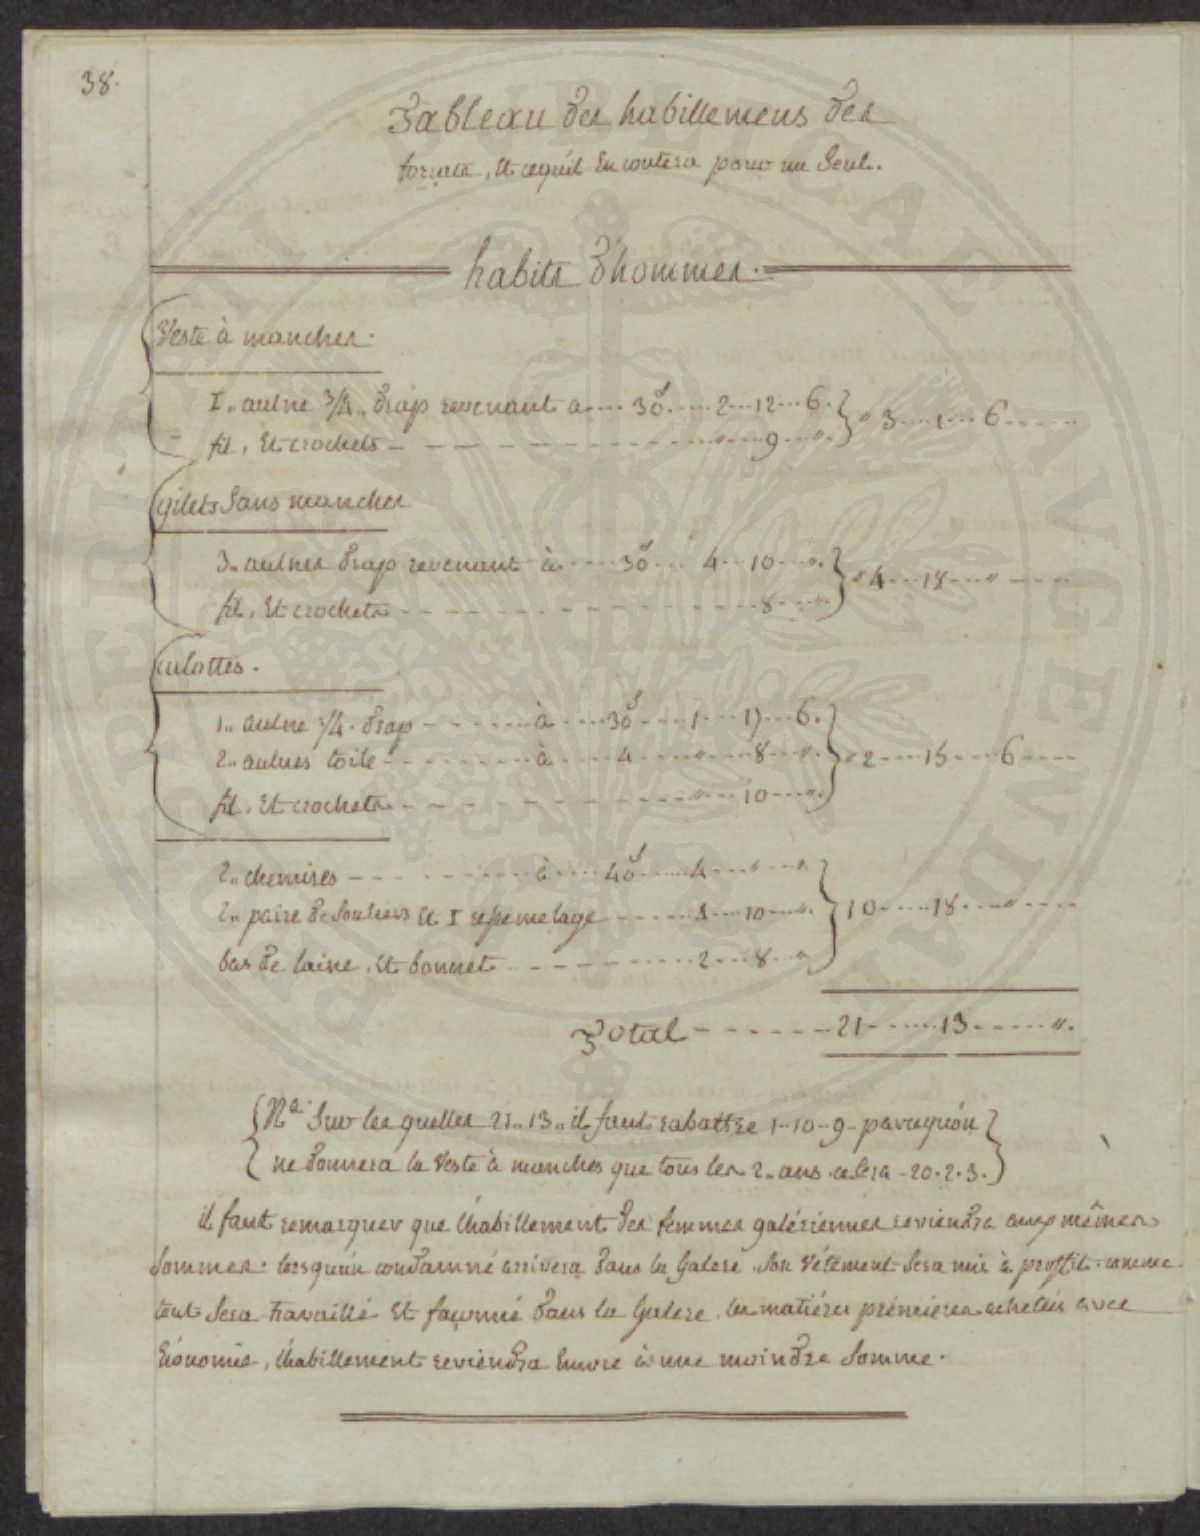 38.
Tableau des habillemens des
forçats, et ce qu'il en coutera pour un seul.
habits d'hommes.
Veste à manches.
1,, aulne 3/4,, drap revenant a .... 30s .... 2 ... 12 ... 6. } " 3 ... 1 ... 6
fil, et crochets - - - " ... 9 ... ".
gilets sans manches
3,, aulnes drap revenant à .... 30s .... 4 ... 10 ... ". } " 4 ... 18 ... "
fil, et crochets - - - 8 ... ".
culottes.
1,, aulne 1/4. drap - - - à .... 30s .... 1 ... 17 ... 6. }
2,, aulnes toile - - - à .... 4 .... " ... 8 ... ". " 2 ... 15 ... 6
fil, et crochets - - - " ... 10 ... ".
2,, chemises - - - à .... 40s .... 4 ... " ... ". }
2,, paire de souliers et 1 repemelage - - - 4 ... 10 ... ". 10 ... 18 ... "
bas de laine, et bonnet - - - 2 ... 8 ... "
Total - - - 21 ... 13 ... ".
Na. Sur les quelles 21,, 13,, il faut rabattre 1 - 10 - 9 - parcequ'on
ne donnera la veste à manches que tous les 2,, ans. cesera - 20. 2. 3.
il faut remarquer que l'habillement des femmes galériennes reviendra aux mêmes
sommes. lorsqu'un condamné arrivera dans la Galere son vétement sera mis à profit. comme
tout sera travaillé et façonné dans la Galere, les matiéres prémieres achetées avec
Economie, l'habillement reviendra Encore à une moindre somme.
PROPRIETATI PUBLICAE AVGENDAE